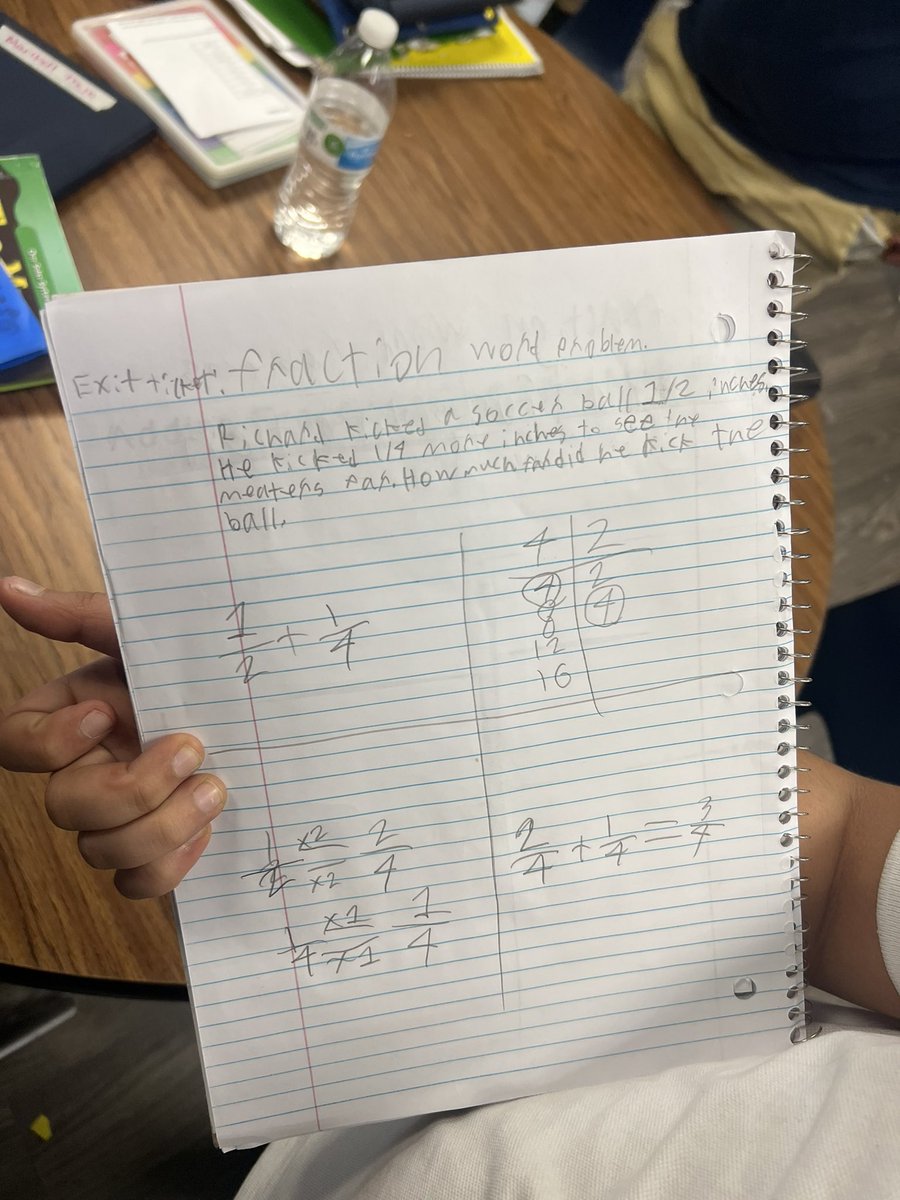 Exit ticket: fraction word problem.
Richard kicked a soccer ball 1/2 inches.
He kicked 1/4 more inches to see the
meaters far. How much far did he kick the
ball.
1/2 + 1/4
4 | 2
4 | 2
8 | 4
12
16
1/2 x2/x2 2/4
1/4 x1/x1 1/4
2/4 + 1/4 = 3/4